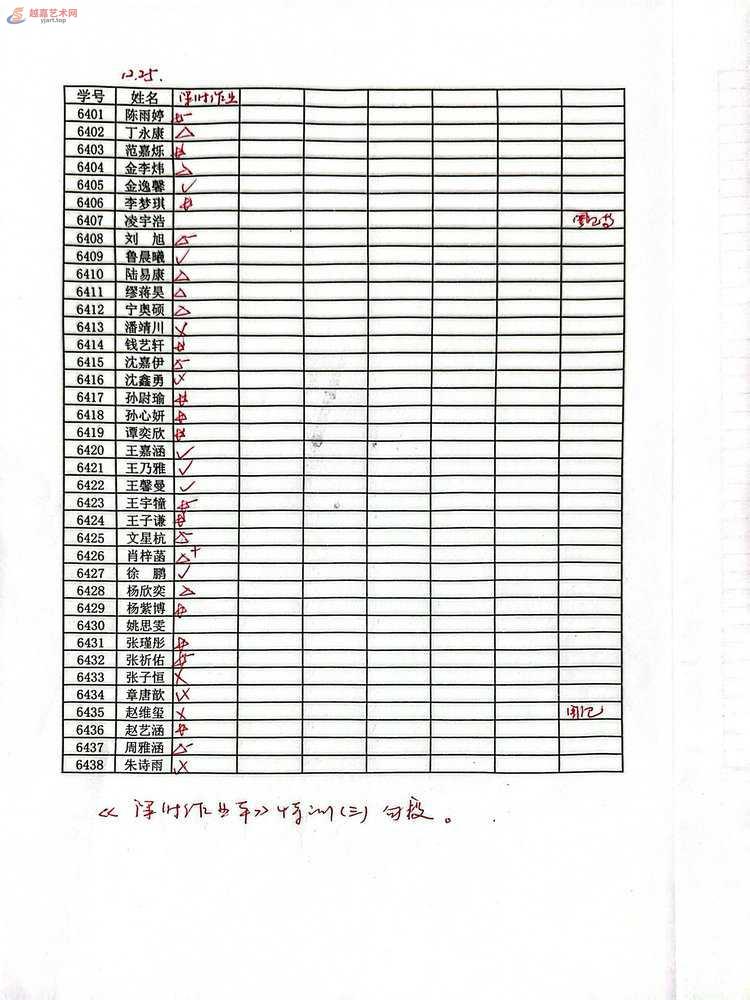 越嘉艺术网
yjart.top
12.25.
学号 姓名 课时作业
6401 陈雨婷
6402 丁永康 △
6403 范嘉烁
6404 金李炜 △
6405 金逸馨 ✓
6406 李梦琪
6407 凌宇浩
6408 刘 旭
6409 鲁晨曦 ✓
6410 陆易康 △
6411 缪蒋昊 △
6412 宁奥硕 △
6413 潘靖川
6414 钱艺轩
6415 沈嘉伊
6416 沈鑫勇
6417 孙尉瑜
6418 孙心妍
6419 谭奕欣
6420 王嘉涵 ✓
6421 王乃雅 ✓
6422 王馨曼 ✓
6423 王宇犝
6424 王子谦
6425 文星杭
6426 肖梓菡 △+
6427 徐 鹏 ✓
6428 杨欣奕 △
6429 杨紫博
6430 姚思雯
6431 张瑾彤
6432 张祈佑
6433 张子恒 ×
6434 章唐歆
6435 赵维玺 × 周记
6436 赵艺涵
6437 周雅涵
6438 朱诗雨
《课时作业本》特训(三)句段。